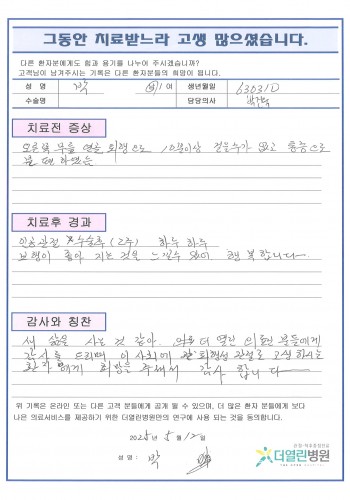 그동안 치료받느라 고생 많으셨습니다.
다른 환자분에게도 힘과 용기를 나누어 주시겠습니까?
고객님이 남겨주시는 기록은 다른 환자분들의 희망이 됩니다.
성 명 박 남 / 여 생년월일 630310
수술명 담당의사 박
치료전 증상
오른쪽 무릎 연골 퇴행으로 10분이상 걸을수가 없고 통증으로
치료후 경과
인공관절 수술후 (2주) 하루 하루
보행이 좋아 지는 것을 느낄수 있어 행복합니다
감사와 칭찬
새 삶을 사는 것 같아. 의료 더 열린 의료진 분들에게
감사를 드리며 이 사회에 퇴행성 관절로 고생 하시는
환자에게 희망을 주세서 감사 합니다
위 기록은 온라인 또는 다른 고객 분들에게 공개 될 수 있으며, 더 많은 환자 분들에게 보다
나은 의료서비스를 제공하기 위한 더열린병원만의 연구에 사용 되는 것을 동의합니다.
2025년 5월 12일
성 명 : 박
관절·척추중점진료
더열린병원